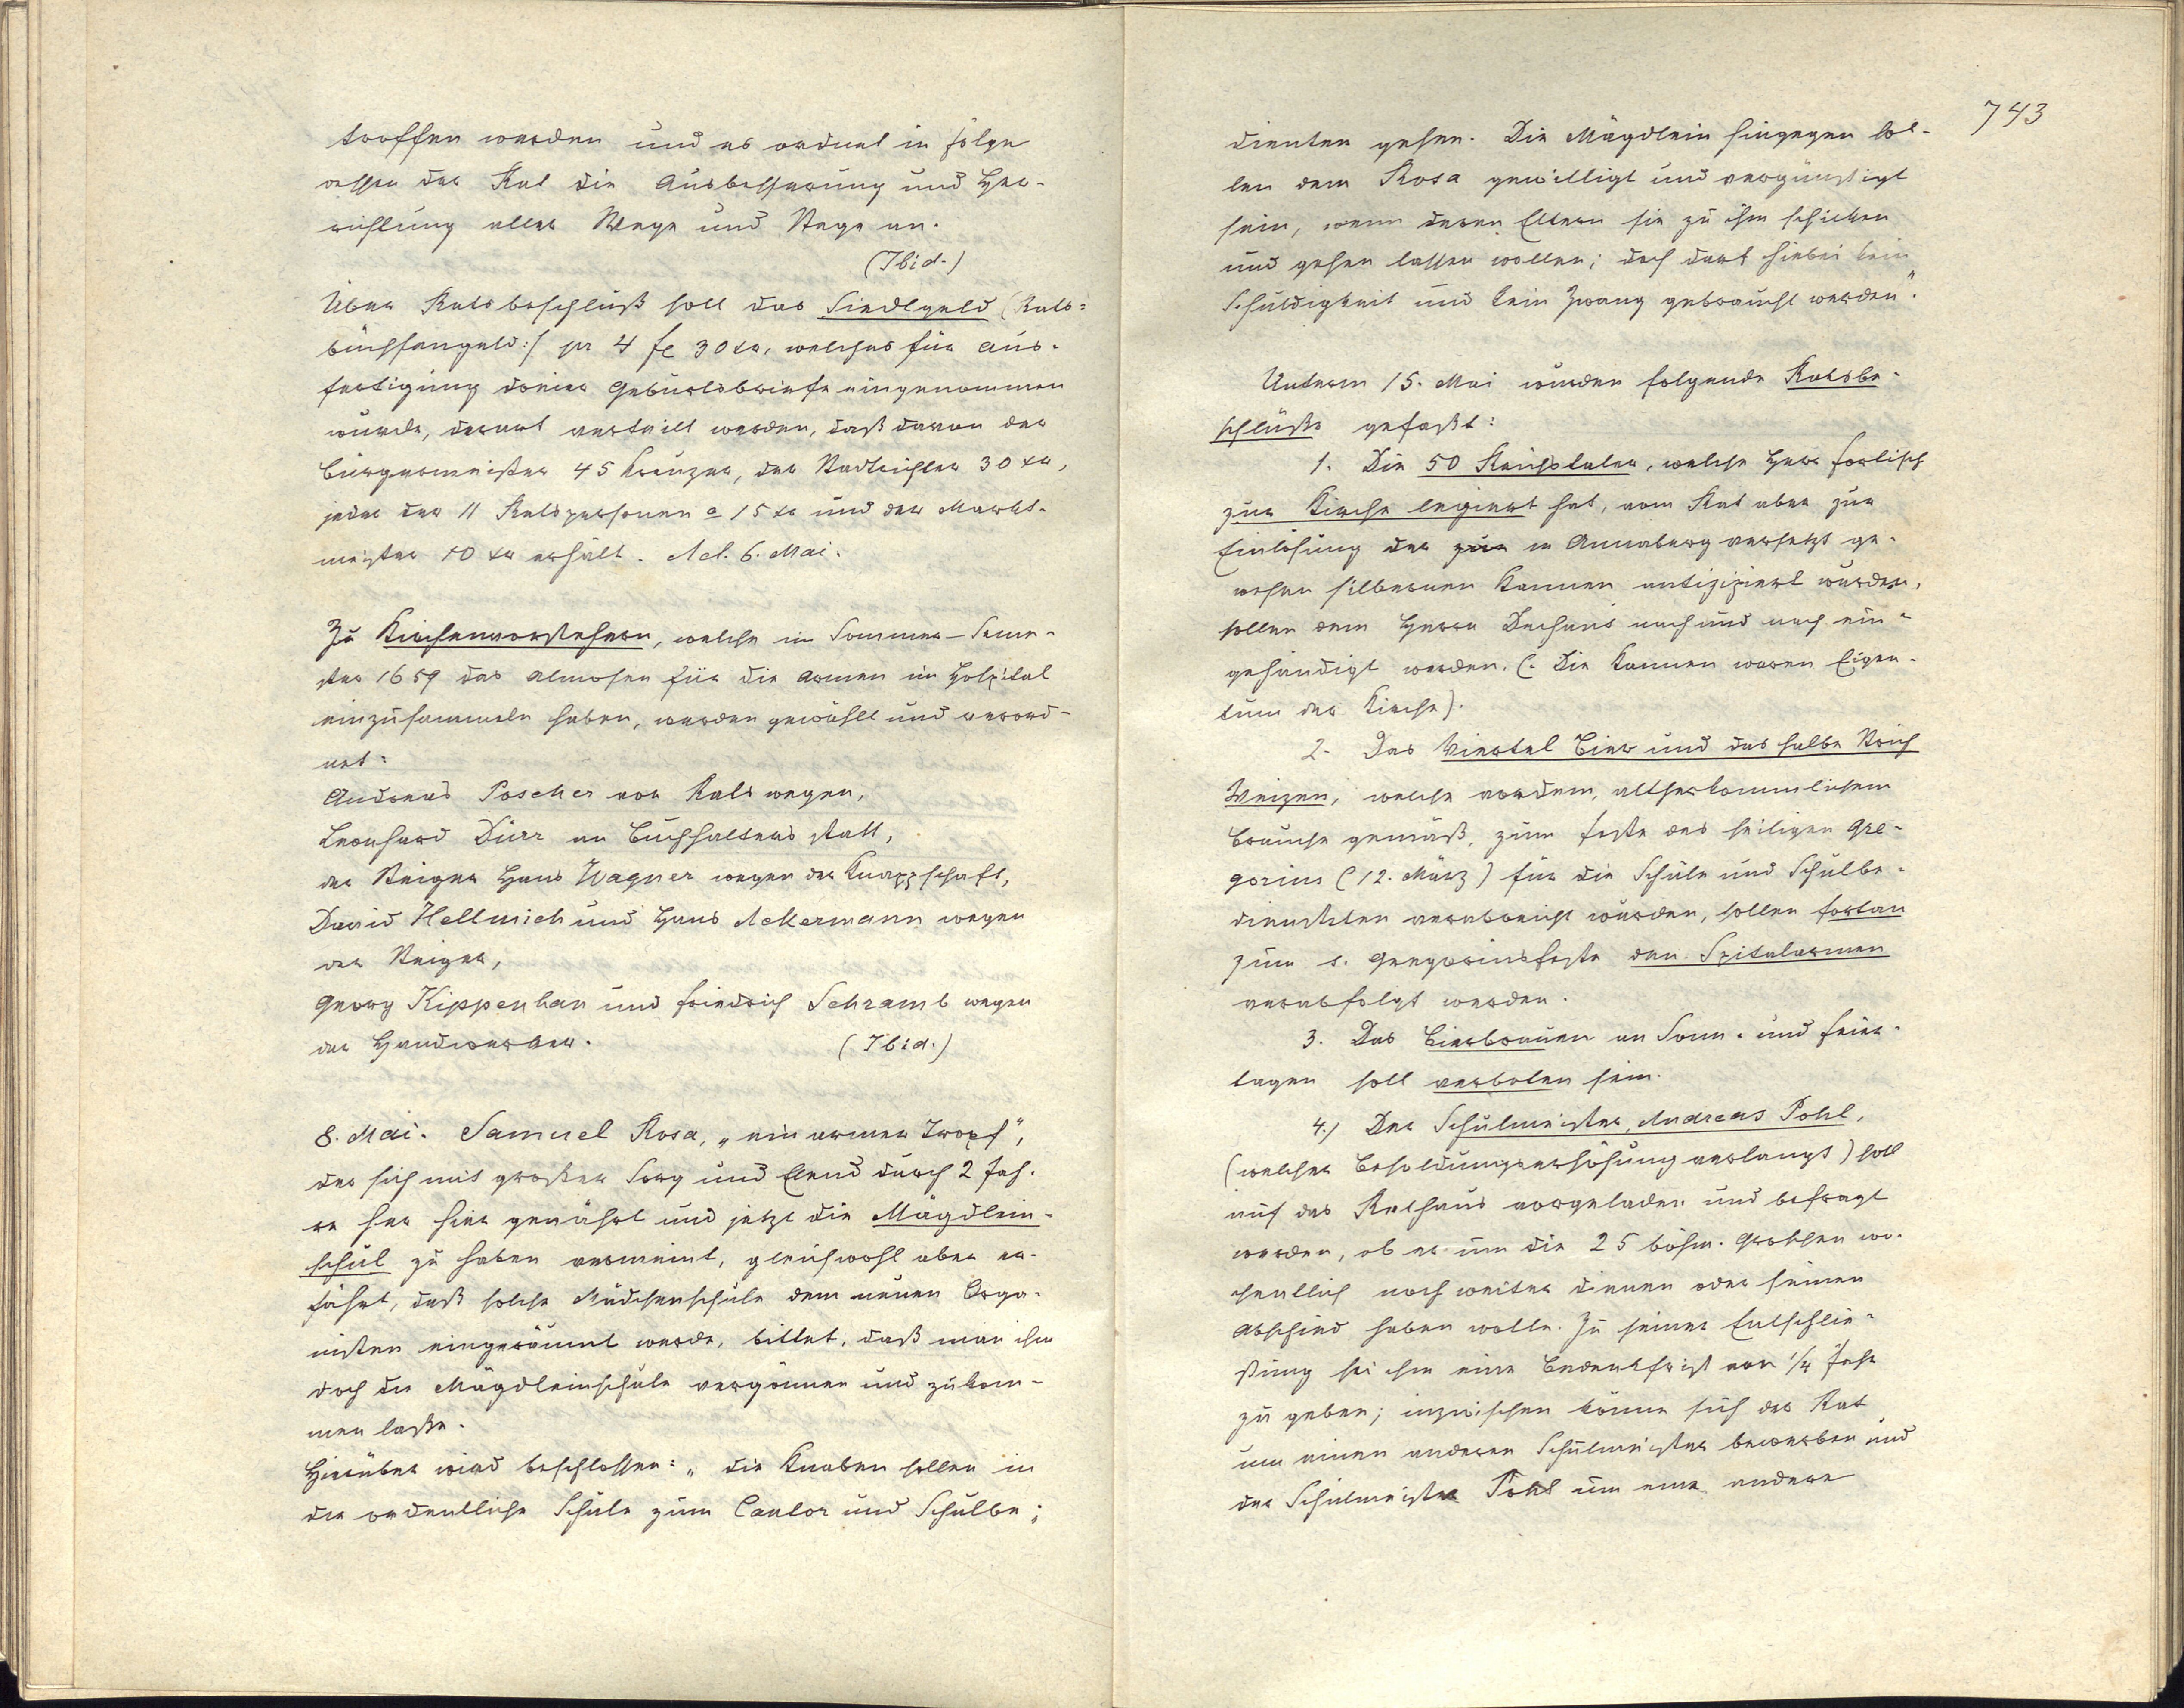 troffen werden und es ordnet in Folge
dessen der Rat die Ausbesserung und Her-
richtung aller Wege und Stege an.
(Ibid.)
Über Ratsbeschluß soll das Siedlgeld (Rats=
büchsengeld:/ pr 4 fl 30 xr, welches für Aus-
fertigung dreier Geburtsbriefe eingenommen
wurde, derart verteilt werden, daß davon der
Bürgermeister 45 Kreuzer, der Stadtrichter 30 xr,
jeder der 11 Ratspersonen a 15 xr und der Markt-
meister 10 xr erhält. Act. 6. Mai.
Zu Kirchenvorstehern, welche im Sommer-Seme-
ster 1659 das Almosen für die Armen im Hospital
einzusammeln haben, werden gewählt und verord-
net:
Andreas Poscher von Rats wegen,
Leonhard Dürr an Buchhalters statt,
der Steiger Hans Wagner wegen der Knappschaft,
David Hellmich und Hans Ackermann wegen
der Steiger,
Georg Kippenhan und Friedrich Schramb wegen
der Handwerker. (Ibid.)
8. Mai. Samuel Rosa, „ein armer Tropf",
der sich mit großer Sorg und Elend durch 2 Jah-
re her hier genährt und jetzt die Mägdlein-
schul zu haben vermeint, gleichwohl aber er-
fährt, daß solche Mädchenschule dem neuen Orga-
nisten eingeräumt werde, bittet, daß man ihm
doch die Mägdleinschule vergönnen und zukom-
men laße.
Hierüber wird beschlossen: „die Knaben sollen in
die ordentliche Schule zum Cantor und Schulbe-
743
dienten gehen. Die Mägdlein hingegen sol-
len dem Rosa gewilligt und vergünstigt
sein, wenn deren Eltern sie zu ihm schicken
und gehen lassen wollen; doch darf hiebei kein
Schuldigkeit und kein Zwang gebraucht werden".
Unterm 15. Mai wurden folgende Ratsbe-
schlüße gefaßt:
1. Die 50 Reichstaler, welche Herr Fortisch
zur Kirche legiert hat, vom Rat aber zur
Einlösung der zur in Annaberg versetzt ge-
wesen silbernen Kannen antizipiert wurden,
sollen dem Herrn Dechans nach und nach ein-
gehändigt werden. (: Die Kannen waren Eigen-
tum der Kirche).
2. Das Viertel Bier und das halbe Strich
Weizen, welche vordem, altherkommlichem
Brauche gemäß, zum Feste des heiligen Gre-
gorius (12. März) für die Schule und Schulbe-
diensteten verabreicht wurden, sollen fortan
zum s. Gregoriusfeste den Spitalarmen
verabfolgt werden.
3. Das Bierbrauen an Sonn- und Feier-
tagen soll verboten sein.
4./ Der Schulmeister, Andreas Pohl,
(welcher Besoldungserhöhung verlangt) soll
auf das Rathaus vorgeladen und befragt
werden, ob er um die 25 böhm. Groschen wö-
chentlich noch weiter dienen oder seinen
Abschied haben wolle. Zu seiner Entschlie-
ßung sei ihm eine Bedenkfrist von 1/4 Jahr
zu geben; inzwischen könne sich der Rat
um einen anderen Schulmeister bewerben und
der Schulmeister Pohl um eine andere